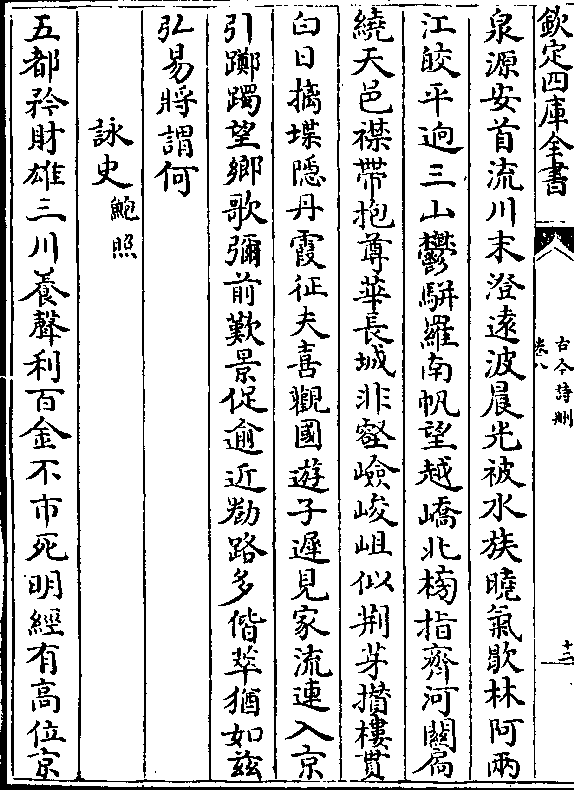 欽定四庫全書
古今詩刪
卷八
十二
泉源安首流川末澄遠波晨光被水族曉氣歇林阿兩
江皎平逈三山鬱駢羅南帆望越嶠北榜指齊河關扃
繞天邑襟帶抱尊華長城非壑嶮峻岨似荆芽攢樓貫
白日摛堞隱丹霞征夫喜觀國遊子遲見家流連入京
引躑躅望鄉歌彌前歎景促逾近勌路多偕萃猶如兹
弘易將謂何
詠史鮑照
五都矜財雄三川養聲利百金不市死明經有高位京